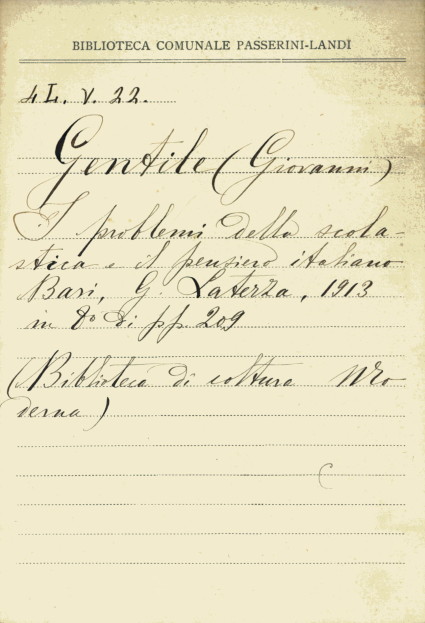 BIBLIOTECA COMUNALE PASSERINI-LANDI
4L. V. 22.
Gentile (Giovanni)
I problemi della scola-
stica e il pensiero italiano
Bari, G. Laterza, 1913
in 8º di pp. 209
(Biblioteca di coltura Mo
derna)